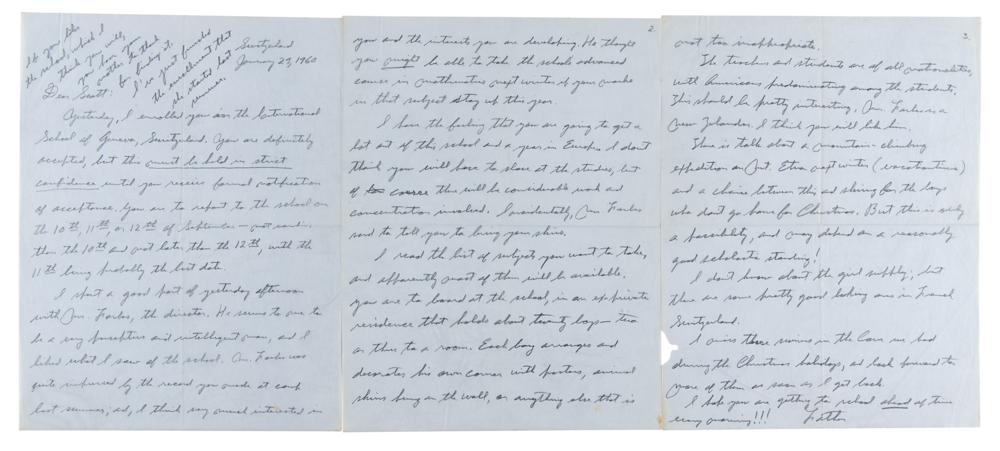 If you like
the school, which I
think you will,
you have your
mother to thank
for finding it.
I've just finished
the enrollment that
she started last
summer.
Switzerland
January 23, 1960
Dear Scott:
Yesterday, I enrolled you in the International
School of Geneva, Switzerland. You are definitely
accepted, but this must be held in strict
confidence until you receive formal notification
of acceptance. You are to report to the school on
the 10th, 11th, or 12th of September — not earlier
than the 10th and not later than the 12th, with the
11th being probably the best date.
I spent a good part of yesterday afternoon
with Mr. Forbes, the director. He seems to me to
be a very perceptive and intelligent man, and I
liked what I saw of the school. Mr. Forbes was
quite impressed by the record you made at camp
last summer, and, I think very much interested in
2.
you and the interests you are developing. He thought
you ought to be able to take the schools advanced
course in mathematics next winter if your marks
in that subject stay up this year.
I have the feeling that you are going to get a
lot out of this school and a year in Europe. I don't
think you will have to slave at the studies, but
of course there will be considerable work and
concentration involved. Incidentally, Mr. Forbes
said to tell you to bring your skis.
I read the list of subjects you want to take,
and apparently most of them will be available.
You are to board at the school, in an ex-private
residence that holds about twenty boys — two
or three to a room. Each boy arranges and
decorates his own corner with posters, animal
skins hung on the wall, or anything else that is
3.
not too inappropriate.
The teachers and students are of all nationalities,
with Americans predominating among the students.
This should be pretty interesting. Mr. Forbes is a
New Zealander. I think you will like him.
There is talk about a mountain-climbing
expedition on Mt. Etna next winter (vacation time)
and a choice between this and skiing for the boys
who don't go home for Christmas. But this is only
a possibility, and may depend on a reasonably
good scholastic standing!
I don't know about the girl supply, but
there are some pretty good looking ones in French
Switzerland.
I miss those swims in the Cove we had
during the Christmas holidays, and look forward to
more of them as soon as I get back.
I hope you are getting to school ahead of time
every morning!!!
Father